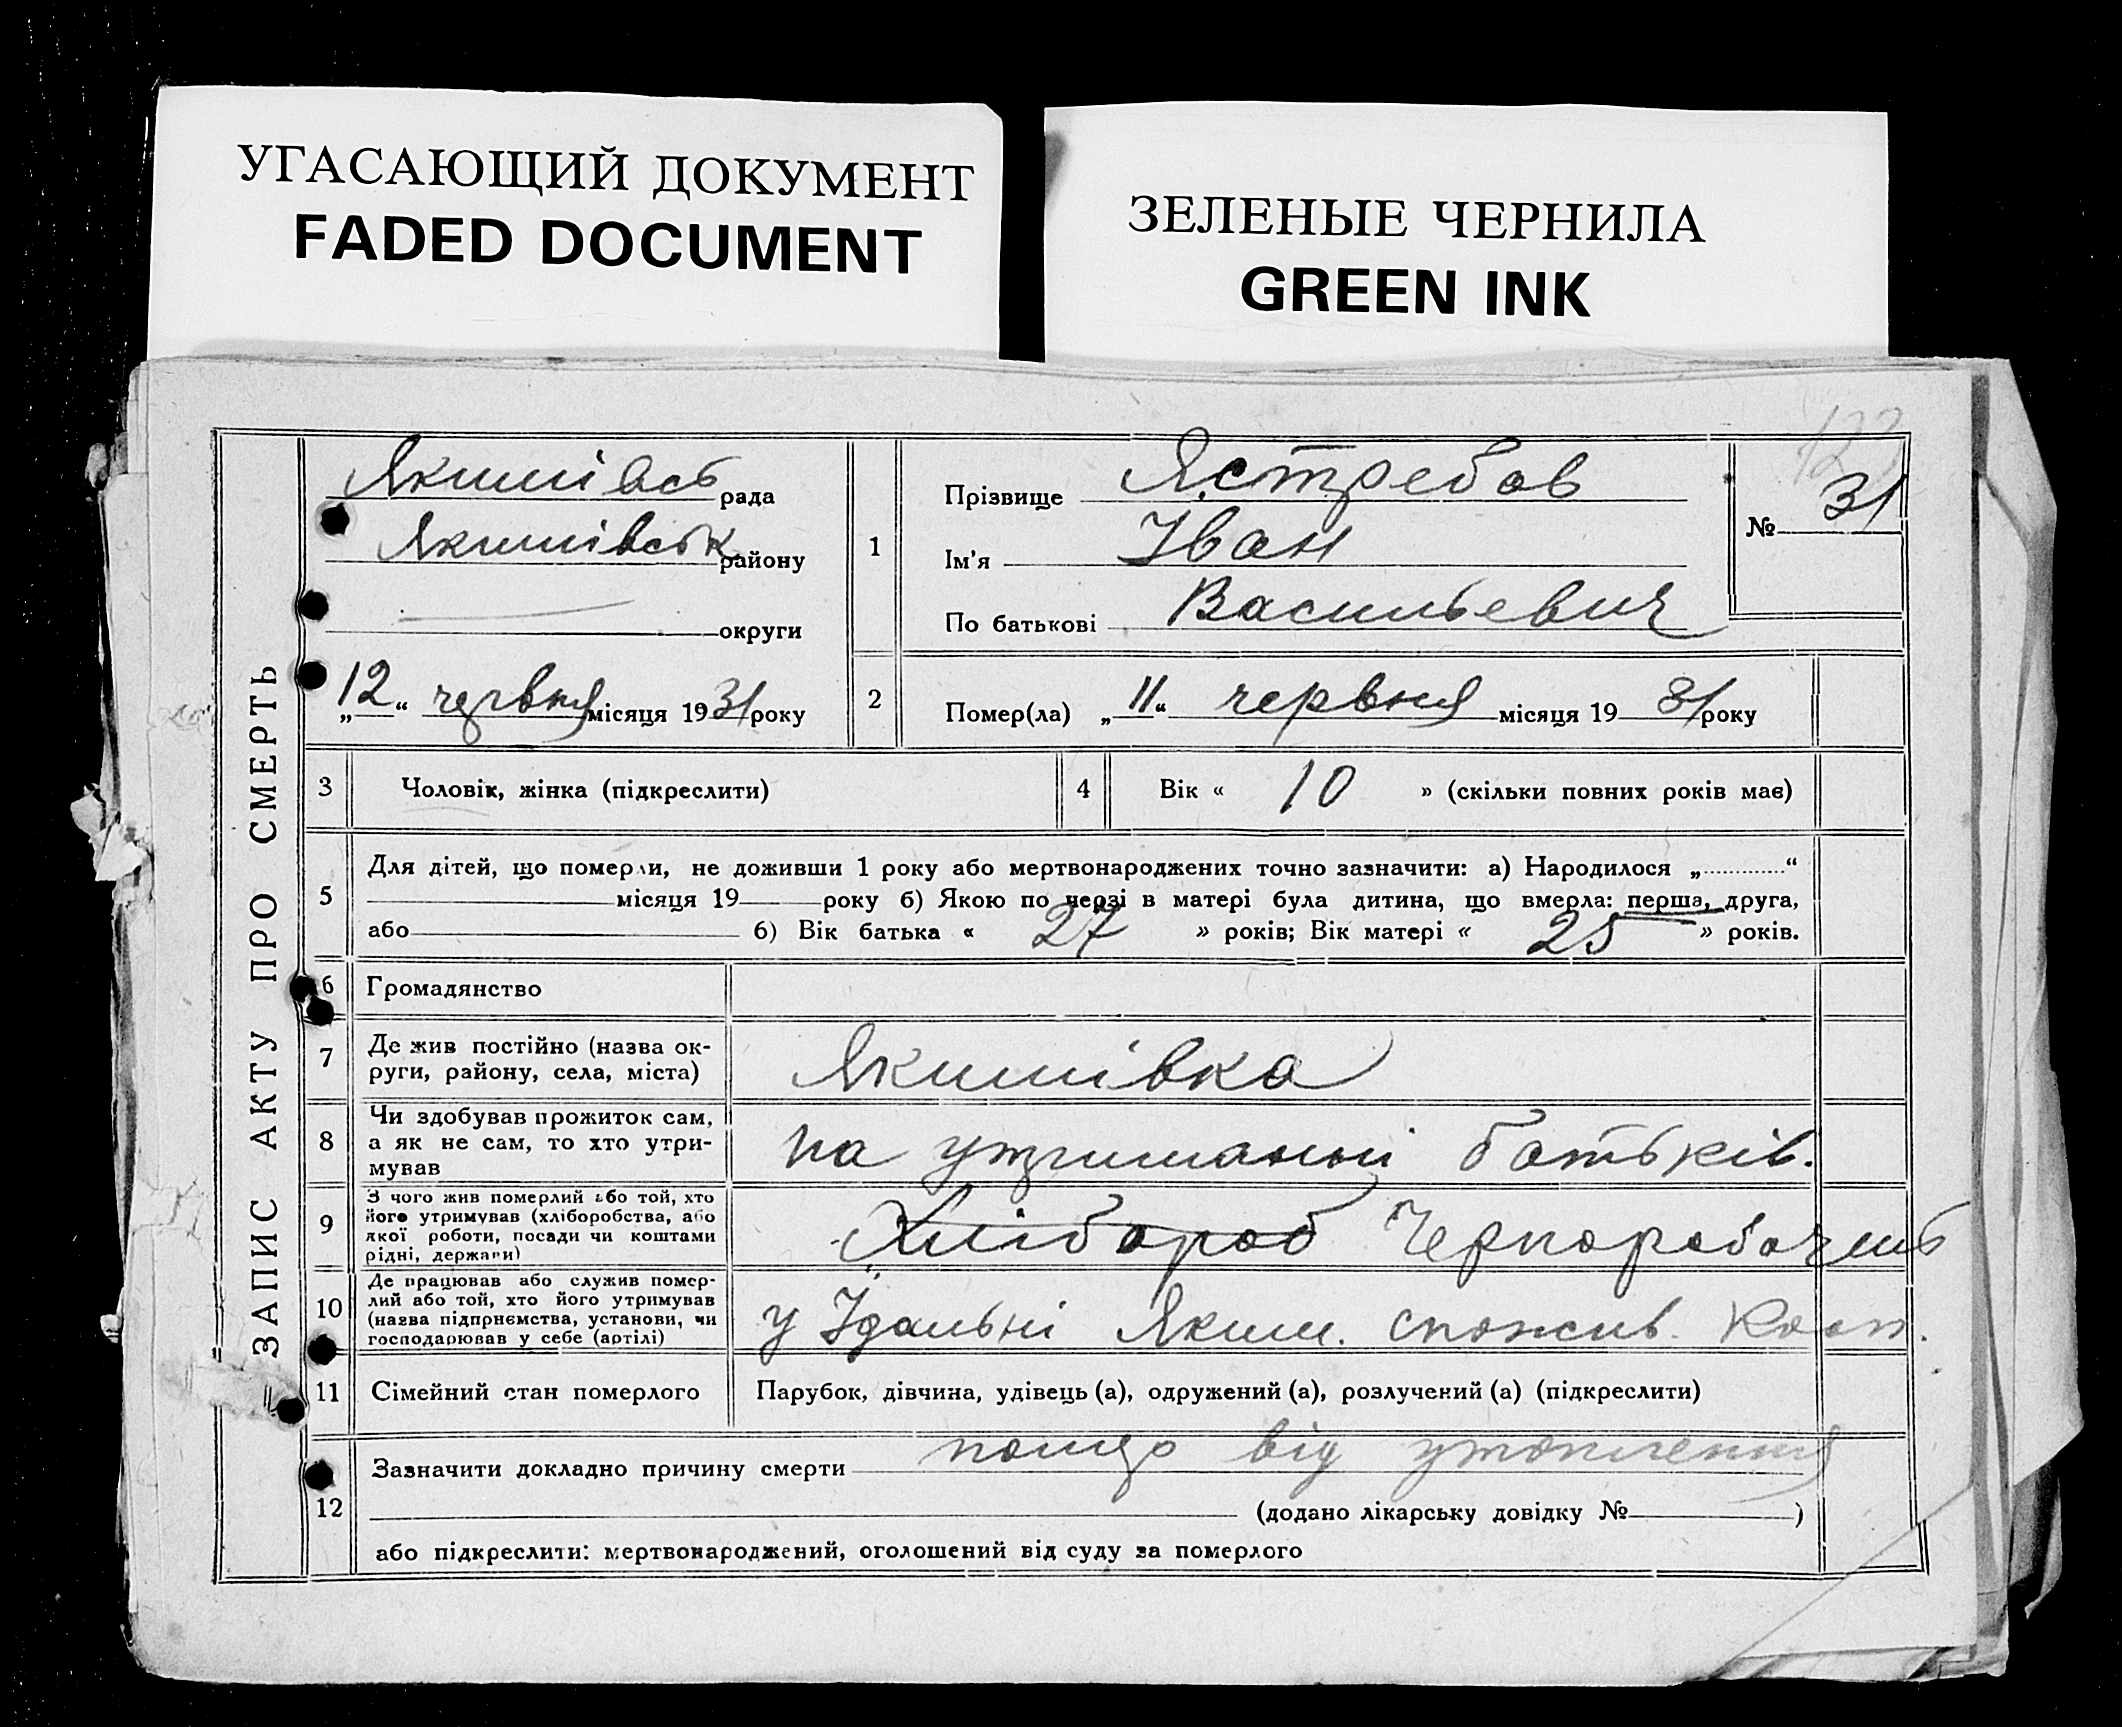 УГАСАЮЩИЙ ДОКУМЕНТ
FADED DOCUMENT
ЗЕЛЕНЫЕ ЧЕРНИЛА
GREEN INK
ЗАПИС АКТУ ПРО СМЕРТЬ
рада
Якимівськ району
округи
„12“ червня місяця 1931 року
1
Прізвище Ястребов
Ім'я Іван
По батькові Васильевич
123
№ 31
2
Помер(ла) „11“ червня місяця 1931 року
3 Чоловік, жінка (підкреслити)
4 Вік « 10 » (скільки повних років має)
5 Для дітей, що померли, не доживши 1 року або мертвонароджених точно зазначити: а) Народилося „............“
місяця 19 року б) Якою по черзі в матері була дитина, що вмерла: перша, друга,
або б) Вік батька « 27 » років; Вік матері « 25 » років.
6 Громадянство
7 Де жив постійно (назва ок-
руги, району, села, міста)
Якимівка
8 Чи здобував прожиток сам,
а як не сам, то хто утри-
мував
на утриманні батьків.
9 З чого жив померлий або той, хто
його утримував (хліборобства, або
якої роботи, посади чи коштами
рідні, держави)
Хлібороб Чернорабочий
10 Де працював або служив помер-
лий або той, хто його утримував
(назва підприємства, установи, чи
господарював у себе (артілі)
у Їдальні Яким. спожив. Кооп.
11 Сімейний стан померлого
Парубок, дівчина, удівець (а), одружений (а), розлучений (а) (підкреслити)
12 Зазначити докладно причину смерти від утоплення
(додано лікарську довідку № )
або підкреслити: мертвонароджений, оголошений від суду за померлого